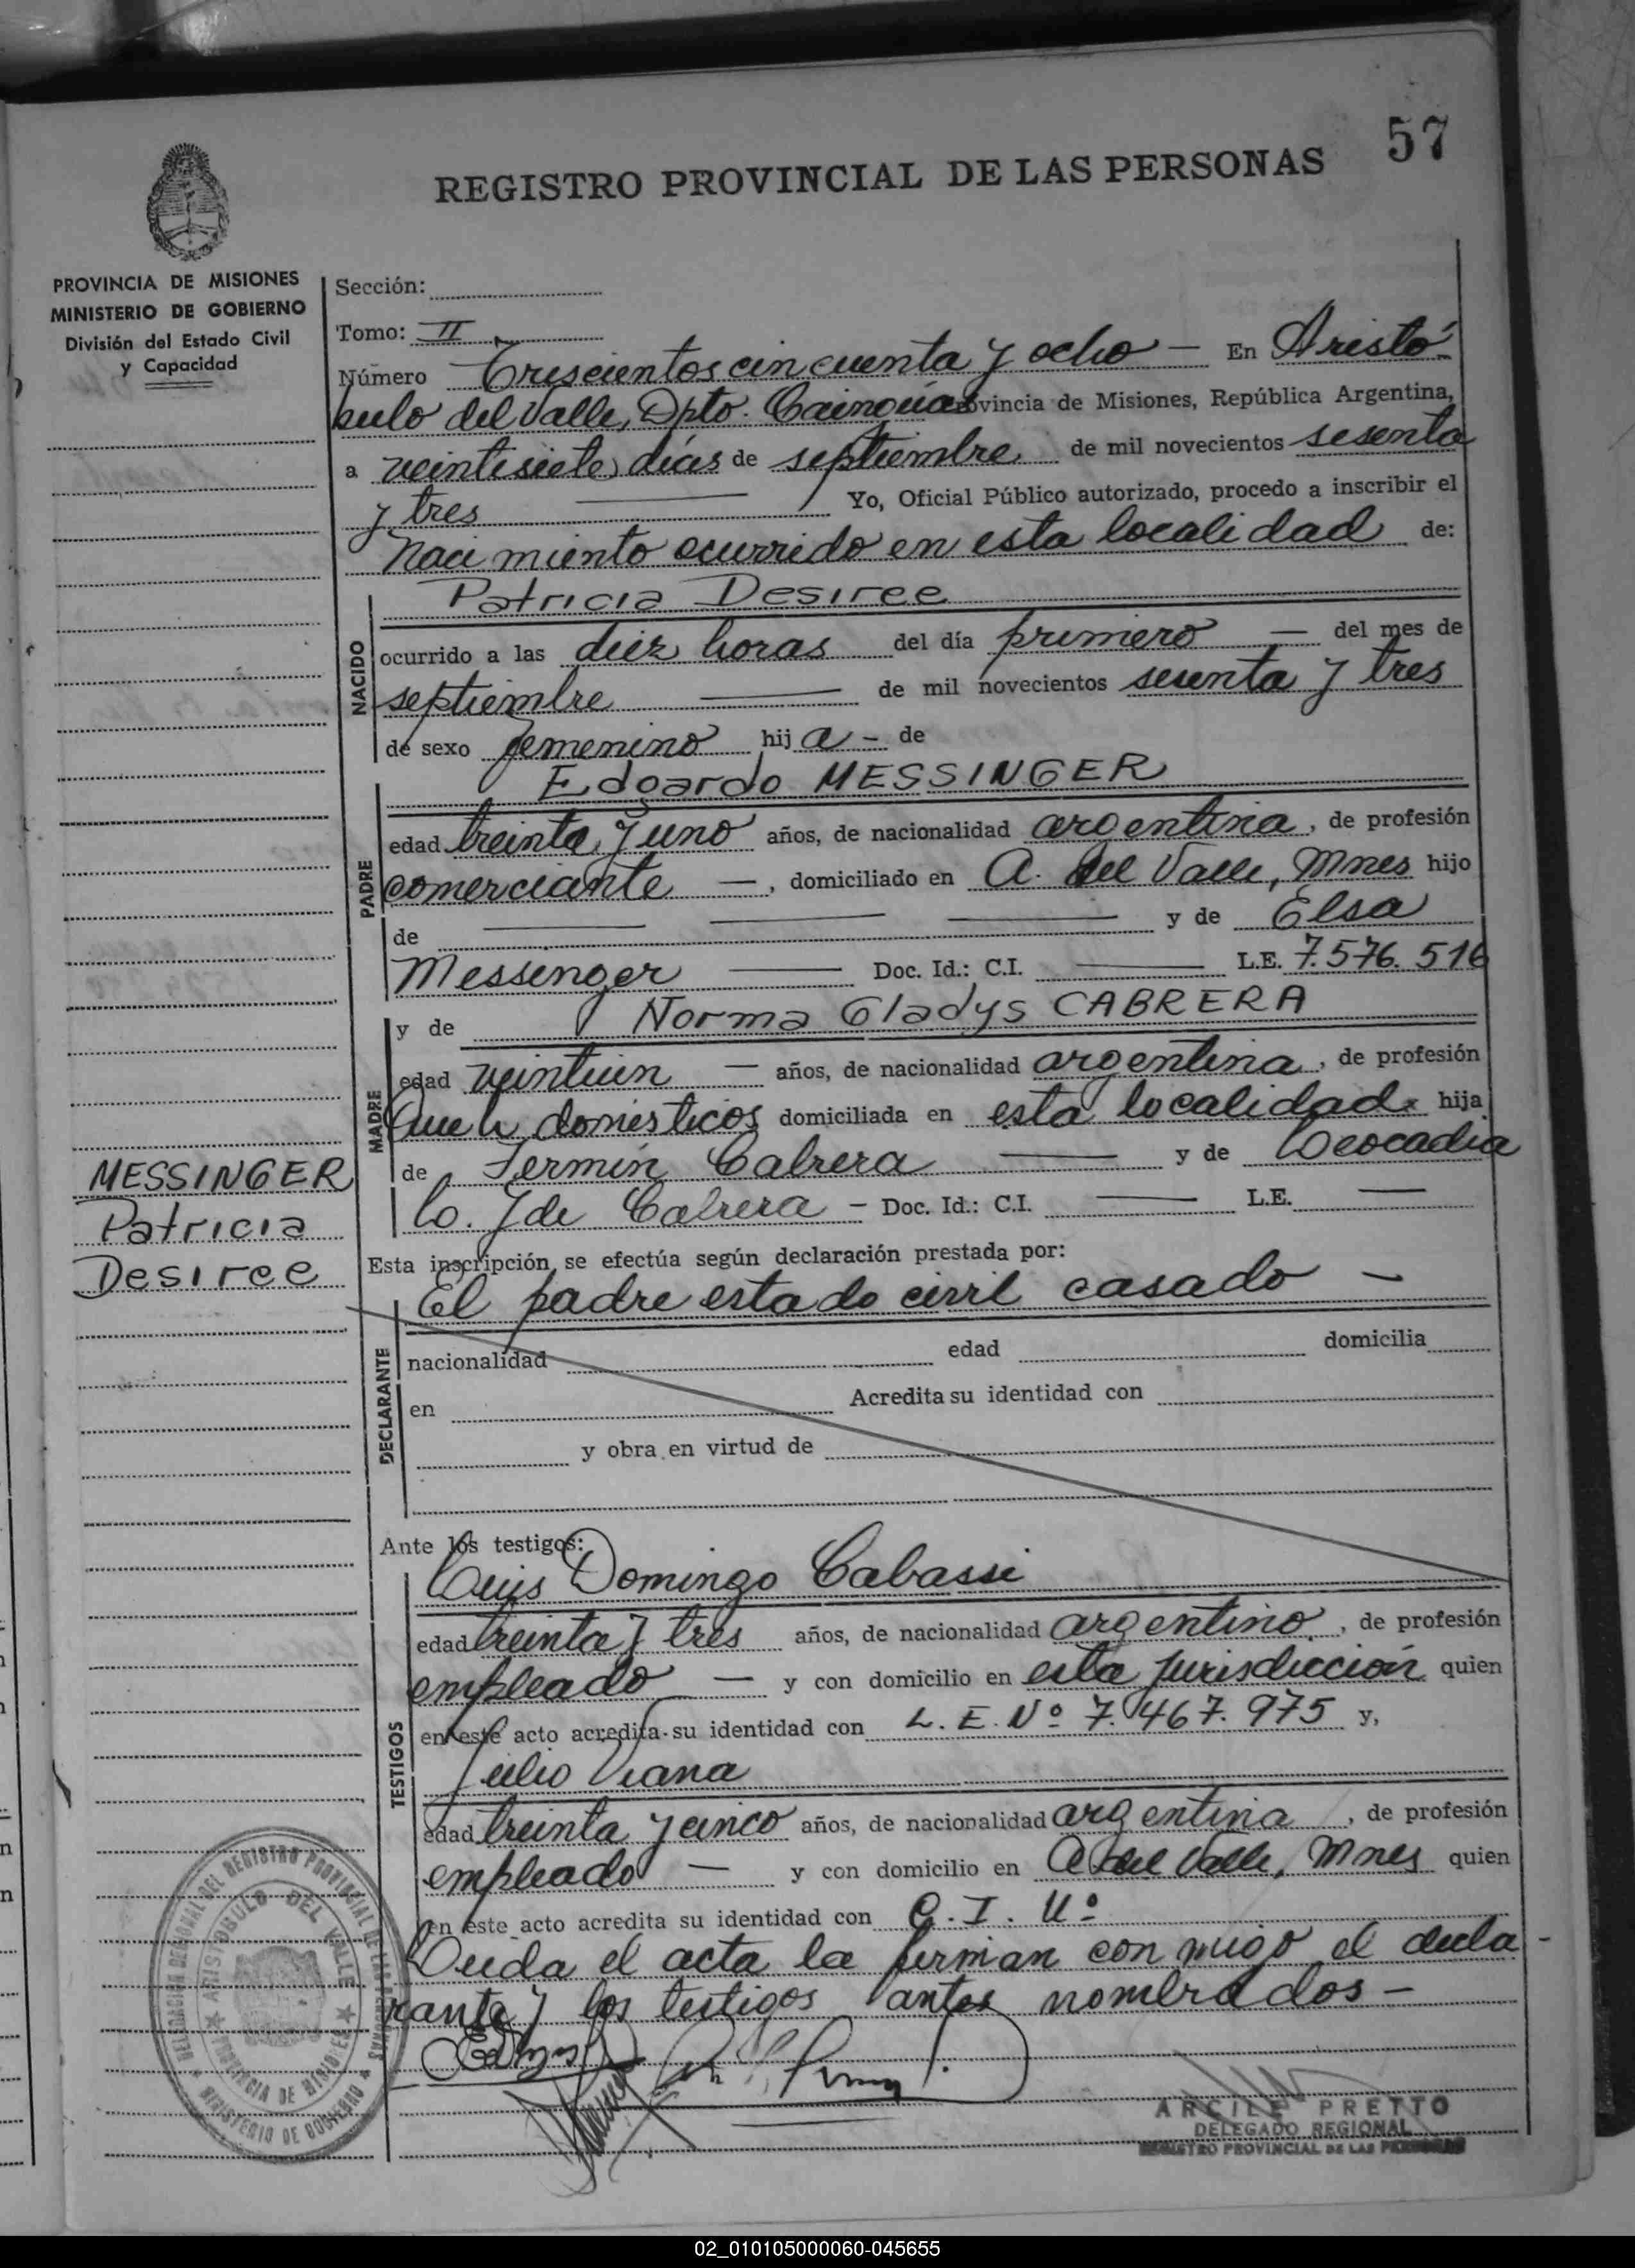 57
REGISTRO PROVINCIAL DE LAS PERSONAS
PROVINCIA DE MISIONES
MINISTERIO DE GOBIERNO
División del Estado Civil
y Capacidad
Sección:
Tomo: II
Número Trescientos cincuenta y ocho — En Aristó-
bulo del Valle, Dpto. Cainguás Provincia de Misiones, República Argentina,
a veintisiete días de septiembre de mil novecientos sesenta
y tres Yo, Oficial Público autorizado, procedo a inscribir el
Nacimiento ocurrido en esta localidad de:
NACIDO
Patricia Desiree
ocurrido a las diez horas del día primero — del mes de
septiembre — de mil novecientos sesenta y tres
de sexo femenino hij a - de
PADRE
Edgardo MESSINGER
edad treinta y uno años, de nacionalidad argentina, de profesión
comerciante —, domiciliado en A. del Valle, Mnes hijo
de — — — y de Elsa
Messinger — Doc. Id.: C.I. — L.E. 7.576.516
MADRE
y de Norma Gladys CABRERA
edad veintiún — años, de nacionalidad argentina, de profesión
Queh. domésticos domiciliada en esta localidad hija
de Fermín Cabrera — y de Leocadia
Lo. J de Cabrera - Doc. Id.: C.I. — L.E. —
MESSINGER
Patricia
Desiree
Esta inscripción se efectúa según declaración prestada por:
DECLARANTE
El padre estado civil casado —
nacionalidad edad domicilia
en Acredita su identidad con
y obra en virtud de
Ante los testigos:
TESTIGOS
Luis Domingo Cabassi
edad treinta y tres años, de nacionalidad argentino, de profesión
empleado — y con domicilio en esta jurisdicción quien
en este acto acredita su identidad con L. E. Nº 7.467.975 y,
Julio Viana
edad treinta y cinco años, de nacionalidad argentina, de profesión
empleado — y con domicilio en A. del Valle, Mnes quien
en este acto acredita su identidad con C. I. Nº
Leída el acta la firman conmigo el decla-
rante y los testigos antes nombrados -
DELEGACION REGIONAL DEL REGISTRO PROVINCIAL DE LAS PERSONAS
MINISTERIO DE GOBIERNO
ARISTOBULO DEL VALLE
PROVINCIA DE MISIONES
ARCILE PRETTO
DELEGADO REGIONAL
REGISTRO PROVINCIAL DE LAS PERSONAS
02_010105000060-045655